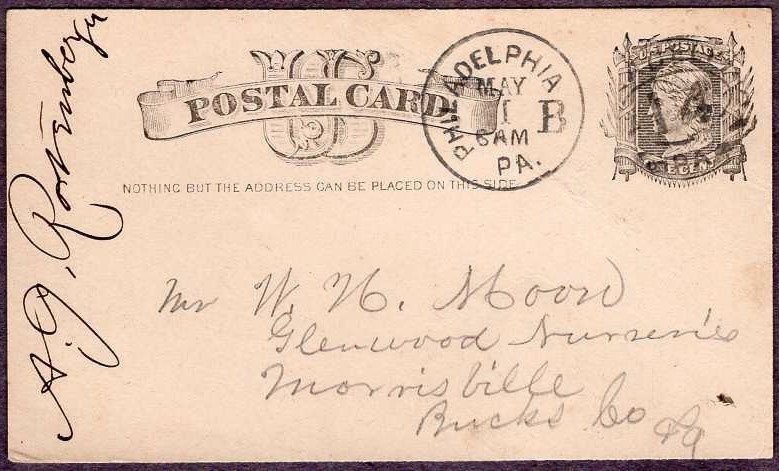 US
POSTAL CARD.
NOTHING BUT THE ADDRESS CAN BE PLACED ON THIS SIDE.
PHILADELPHIA
MAY
1
6AM
PA.
B
U.S. POSTAGE
14
ONE CENT
Mr W. H. Moon
Glenwood Nurseries
Morrisville
Bucks Co Pa
A. G.